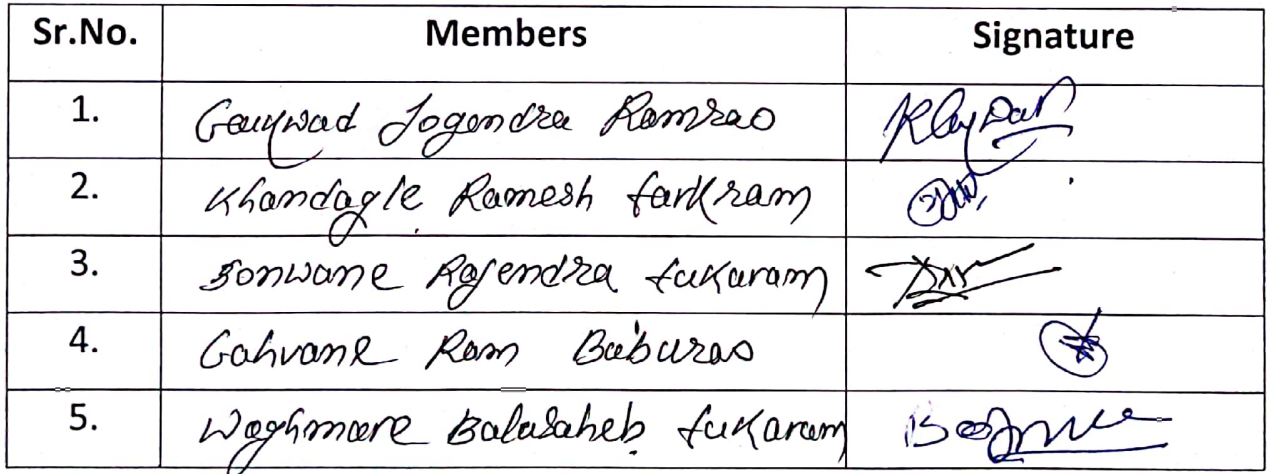 Sr.No. Members Signature
1. Gauywad Jogendra Ramrao
2. Khandagle Ramesh
3. Sonwane Rajendra tukaram
4. Gahvane Ram Baburao
5. Waghmare Balasaheb tukaram